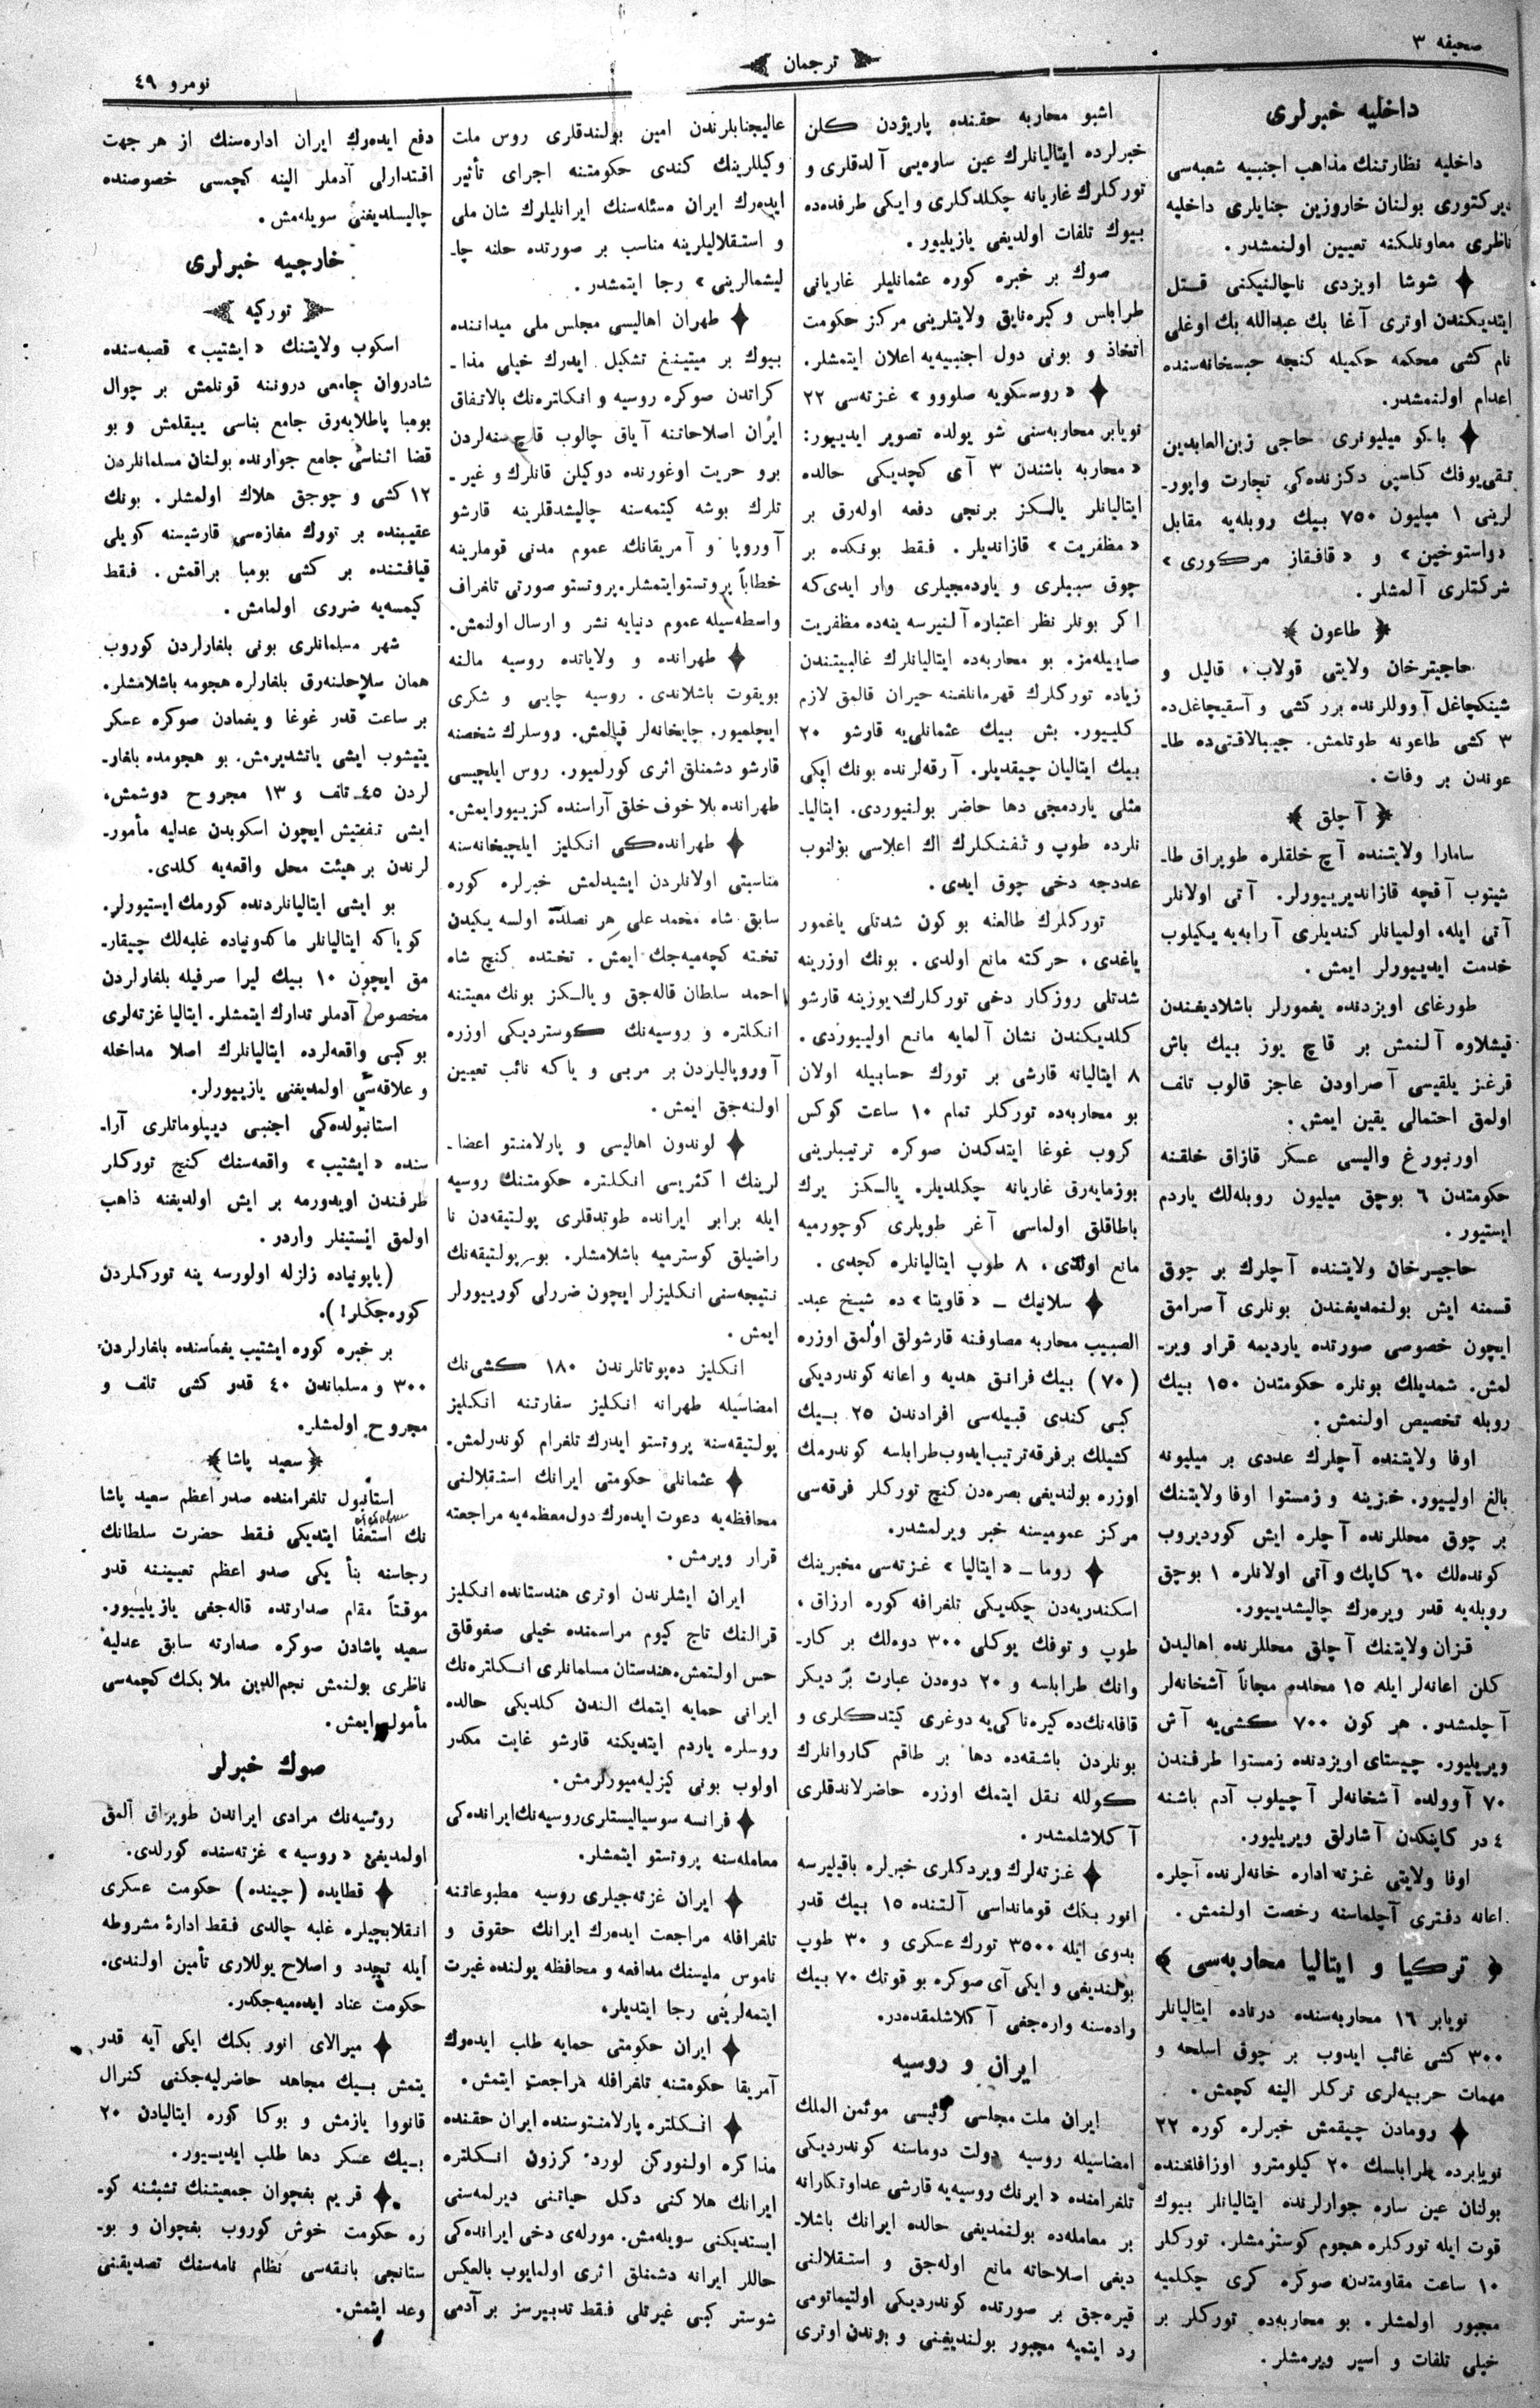 صحیفه ٣
ترجمان
نومرو ٤٩
داخلیه خبرلری
داخلیه نظارتنك مذاهب اجنبیه شعبه‌سی
دیركتوری بولنان خاروزین جنابلری داخلیه
ناظری معاونلكنه تعیین اولنمشدر.
شوشا اویزدی ناچالنیكنی قتل
ایتدیكندن اوتری آغا بك عبدالله بك اوغلی
نام كشی محكمه حكمیله كنجه حبسخانه‌سنده
اعدام اولنمشدر.
باكو میلیونری حاجی زین‌العابدین
تقی‌یوفك كاسپی دكزنده‌كی تجارت واپور-
لرینی ١ میلیون ٧٥٠ بیك روبله‌یه مقابل
«واستوخین» و «قافقاز مركوری»
شركتلری آلمشلر.
طاعون
حاجیترخان ولایتی قولاب، قالیل و
شینكچاغل آووللرنده برر كشی و آسقیچاغل‌ده
٣ كشی طاعونه طوتلمش. جیبالاقتی‌ده طا-
عوندن بر وفات.
آچلق
سامارا ولایتنده آچ خلقلره طوپراق طا-
شیتوب آقچه قازاندیرییورلر. آتی اولانلر
آتی ایله، اولمیانلر كندیلری آرابه‌یه یكیلوب
خدمت ایدییورلر ایمش.
طورغای اویزدنده یغمورلر باشلادیغندن
قیشلاوه آلنمش بر قاچ یوز بیك باش
قرغز یلقیسی آصراودن عاجز قالوب تلف
اولمق احتمالی یقین ایمش.
اورنبورغ والیسی عسكر قازاق خلقنه
حكومتدن ٦ بوچق میلیون روبله‌لك یاردم
ایستیور.
حاجیترخان ولایتنده آچلرك بر چوق
قسمنه ایش بولنمدیغندن بونلری آصرامق
ایچون خصوصی صورتده یاردیمه قرار ویر-
لمش. شمدیلك بونلره حكومتدن ١٥٠ بیك
روبله تخصیص اولنمش.
اوفا ولایتنده آچلرك عددی بر میلیونه
بالغ اولییور. خزینه و زمستوا اوفا ولایتنك
بر چوق محللرنده آچلره ایش كوردیروب
كونده‌لك ٦٠ كاپك و آتی اولانلره ١ بوچق
روبله‌یه قدر ویره‌رك چالیشدیییور.
قزان ولایتنك آچلق محللرنده اهالیدن
كلن اعانه‌لر ایله ١٥ محلده مجاناً آشخانه‌لر
آچلمشدر. هر كون ٧٠٠ كشی‌یه آش
ویریلیور. چیستای اویزدنده زمستوا طرفندن
٧٠ آوولده آشخانه‌لر آچیلوب آدم باشنه
٤ در كاپكدن آشارلق ویریلیور.
اوفا ولایتی غزته اداره خانه‌لرنده آچلره
اعانه دفتری آچلماسنه رخصت اولنمش.
تركیا و ایتالیا محاربه‌سی
نویابر ١٦ محاربه‌سنده درناده ایتالیانلر
٣٠٠ كشی غائب ایدوب بر چوق اسلحه و
مهمات حربیه‌لری تركلر الینه كچمش.
رومادن چیقمش خبرلره كوره ٢٢
نویابرده طرابلسك ٢٠ كیلومترو اوزاقلغنده
بولنان عین ساره جوارلرنده ایتالیانلر بیوك
قوت ایله توركلره هجوم كوسترمشلر. توركلر
١٠ ساعت مقاومتدن صوكره كری چكلمیه
مجبور اولمشلر. بو محاربه‌ده توركلر بر
خیلی تلفات و اسیر ویرمشلر.
اشبو محاربه حقنده پاریژدن كلن
خبرلرده ایتالیانلرك عین ساره‌یی آلدقلری و
توركلرك غاریانه چكلدكلری و ایكی طرفده‌ده
بیوك تلفات اولدیغی یازیلیور.
صوك بر خبره كوره عثمانلیلر غاریانی
طرابلس و كیره‌نایق ولایتلرینی مركز حكومت
اتخاذ و بونی دول اجنبیه‌یه اعلان ایتمشلر.
«روسكویه صلووو» غزته‌سی ٢٢
نویابر محاربه‌سنی شو یولده تصویر ایدییور:
«محاربه باشندن ٣ آی كچدیكی حالده
ایتالیانلر یالكز برنجی دفعه اوله‌رق بر
«مظفریت» قازاندیلر. فقط بونكده بر
چوق سببلری و یاردمجیلری وار ایدی‌كه
اكر بونلر نظر اعتباره آلنیرسه ینه‌ده مظفریت
صاییله‌مز. بو محاربه‌ده ایتالیانلرك غالبیتندن
زیاده توركلرك قهرمانلغنه حیران قالمق لازم
كلییور. بش بیك عثمانلی‌یه قارشو ٢٠
بیك ایتالیان چیقدیلر. آرقه‌لرنده بونك ایكی
مثلی یاردمجی دها حاضر بولنیوردی. ایتالیا-
نلرده طوپ و تفنكلرك اك اعلاسی بولنوب
عددجه دخی چوق ایدی.
توركلرك طالعنه بو كون شدتلی یاغمور
یاغدی، حركته مانع اولدی. بونك اوزرینه
شدتلی روزكار دخی توركلرك یوزینه قارشو
كلدیكندن نشان آلمایه مانع اولییوردی.
٨ ایتالیانه قارشی بر تورك حسابیله اولان
بو محاربه‌ده توركلر تمام ١٠ ساعت كوكس
كروب غوغا ایتدكدن صوكره ترتیبلرینی
بوزمایه‌رق غاریانه چكلدیلر. یالكز یرك
باطاقلق اولماسی آغر طوپلری كوچورمیه
مانع اولدی، ٨ طوپ ایتالیانلره كچدی.
سلانیك – «قاویتا» ده شیخ عبد-
الصبیب محاربه مصاوفنه قارشولق اولمق اوزره
(٧٠) بیك فرانق هدیه و اعانه كوندردیكی
كبی كندی قبیله‌سی افرادندن ٢٥ بیك
كشیلك بر فرقه ترتیب ایدوب طرابلسه كوندرمك
اوزره بولندیغی بصره‌دن كنچ توركلر فرقه‌سی
مركز عمومیسنه خبر ویرلمشدر.
روما – «ایتالیا» غزته‌سی مخبرینك
اسكندریه‌دن چكدیكی تلغرافه كوره ارزاق،
طوپ و توفك یوكلی ٣٠٠ دوه‌لك بر كار-
وانك طرابلسه و ٢٠ دوه‌دن عبارت بر دیكر
قافله‌نك‌ده كیره‌ناكی‌یه دوغری كیتدكلری و
بونلردن باشقه‌ده دها بر طاقم كاروانلرك
كولله نقل ایتمك اوزره حاضرلاندقلری
آكلاشلمشدر.
غزته‌لرك ویردكلری خبرلره باقیلیرسه
انور بكك قومانداسی آلتنده ١٥ بیك قدر
بدوی ایله ٣٥٠٠ تورك عسكری و ٣٠ طوپ
بولندیغی و ایكی آی صوكره بو قوتك ٧٠ بیك
راده‌سنه واره‌جغی آكلاشلمقده‌در.
ایران و روسیه
ایران ملت مجلسی رئیسی موئتمن الملك
امضاسیله روسیه دولت دوماسنه كوندردیكی
تلغرامنده «ایرنك روسیه‌یه قارشی عداوتكارانه
بر معامله‌ده بولنمدیغی حالده ایرانك باشلا-
دیغی اصلاحاته مانع اوله‌جق و استقلالنی
قیره‌جق بر صورتده كوندردیكی اولتیماتومی
رد ایتمیه مجبور بولندیغنی و بوندن اوتری
عالیجنابلرندن امین بولندقلری روس ملت
وكیللرینك كندی حكومتنه اجرای تأثیر
ایده‌رك ایران مسئله‌سنك ایرانلیلرك شان ملی
و استقلالیلرینه مناسب بر صورتده حلنه چا-
لیشمالرینی» رجا ایتمشدر.
طهران اهالیسی مجلس ملی میداننده
بیوك بر میتینغ تشكیل ایدرك خیلی مذا-
كراتدن صوكره روسیه و انكلتره‌نك بالاتفاق
ایران اصلاحاتنه آیاق چالوب قاچ سنه‌لردن
برو حریت اوغورنده دوكیلن قانلرك و غیر-
تلرك بوشه كیتمه‌سنه چالیشدقلرینه قارشو
آوروپا و آمریقانك عموم مدنی قوملرینه
خطاباً پروتستو ایتمشلر. پروتستو صورتی تلغراف
واسطه‌سیله عموم دنیایه نشر و ارسال اولنمش.
طهرانده و ولایاتده روسیه مالنه
بویقوت باشلاندی. روسیه چایی و شكری
ایچلمیور. چایخانه‌لر قپالمش. روسلرك شخصنه
قارشو دشمنلق اثری كورلمیور. روس ایلچیسی
طهرانده بلا خوف خلق آراسنده كزییور ایمش.
طهرانده‌كی انكلیز ایلچیخانه‌سنه
مناسبتی اولانلردن ایشیدلمش خبرلره كوره
سابق شاه محمد علی هر نصلده اولسه یكیدن
تخته كچه‌میه‌جك ایمش. تختده كنچ شاه
احمد سلطان قاله‌جق و یالكز بونك معیتنه
انكلتره و روسیه‌نك كوستردیكی اوزره
آوروپالیلردن بر مربی و یاكه نائب تعیین
اولنه‌جق ایمش.
لوندون اهالیسی و پارلامنتو اعضا-
لرینك اكثریسی انكلتره حكومتنك روسیه
ایله برابر ایرانده طوتدقلری پولتیقه‌دن نا
راضیلق كوسترمیه باشلامشلر. بو پولتیقه‌نك
نتیجه‌سنی انكلیزلر ایچون ضررلی كورییورلر
ایمش.
انكلیز ده‌پوتاتلرندن ١٨٠ كشی‌نك
امضاسیله طهرانه انكلیز سفارتنه انكلیز
پولتیقه‌سنه پروتستو ایدرك تلغرام كوندرلمش.
عثمانلی حكومتی ایرانك استقلالنی
محافظه‌یه دعوت ایده‌رك دول معظمه‌یه مراجعته
قرار ویرمش.
ایران ایشلرندن اوتری هندستانده انكلیز
قرالنك تاج كیوم مراسمنده خیلی صغوقلق
حس اولنمش، هندستان مسلمانلری انكلتره‌نك
ایرانی حمایه ایتمك الندن كلدیكی حالده
روسلره یاردم ایتدیكنه قارشو غایت مكدر
اولوب بونی كیزلیه‌میورلرمش.
فرانسه سوسیالیستلری روسیه‌نك ایرانده‌كی
معامله‌سنه پروتستو ایتمشلر.
ایران غزته‌جیلری روسیه مطبوعاتنه
تلغرافله مراجعت ایده‌رك ایرانك حقوق و
ناموس ملیسنك مدافعه و محافظه یولنده غیرت
ایتمه‌لرینی رجا ایتدیلر.
ایران حكومتی حمایه طلب ایده‌رك
آمریقا حكومتنه تلغرافله مراجعت ایتمش.
انكلتره پارلامنتوسنده ایران حقنده
مذاكره اولنوركن لورد كرزون انكلتره
ایرانك هلاكنی دكل حیاتنی دیرلمه‌سنی
ایستدیكنی سویله‌مش. مورله‌ی دخی ایرانده‌كی
حاللر ایرانه دشمنلق اثری اولمایوب بالعكس
شوستر كبی غیرتلی فقط تدبیرسز بر آدمی
دفع ایده‌رك ایران اداره‌سنك از هر جهت
اقتدارلی آدملر الینه كچمسی خصوصنده
چالیسلدیغنی سویله‌مش.
خارجیه خبرلری
توركیه
اسكوب ولایتنك «ایشتیب» قصبه‌سنده
شادروان جامعی درونینه قونلمش بر چوال
بومبا پاطلایه‌رق جامع بناسی ییقلمش و بو
قضا اثناسی جامع جوارنده بولنان مسلمانلردن
١٢ كشی و چوجق هلاك اولمشلر. بونك
عقیبنده بر تورك مغازه‌سی قارشیسنه كویلی
قیافتنده بر كشی بومبا براقمش. فقط
كیمسه‌یه ضرری اولمامش.
شهر مسلمانلری بونی بلغارلردن كوروب
همان سلاحلنه‌رق بلغارلره هجومه باشلامشلر.
بر ساعت قدر غوغا و یغمادن صوكره عسكر
یتیشوب ایشی یاتشدیرمش. بو هجومده بلغار-
لردن ٤٥ تلف و ١٣ مجروح دوشمش،
ایشی تفتیش ایچون اسكوبدن عدلیه مأمور-
لرندن بر هیئت محل واقعه‌یه كلدی.
بو ایشی ایتالیانلردنده كورمك ایستیورلر.
كویاكه ایتالیانلر ماكدونیاده غلبه‌لك چیقار-
مق ایچون ١٠ بیك لیرا صرفیله بلغارلردن
مخصوص آدملر تدارك ایتمشلر. ایتالیا غزته‌لری
بو كبی واقعه‌لرده ایتالیانلرك اصلا مداخله
و علاقه‌سی اولمدیغنی یازییورلر.
استانبولده‌كی اجنبی دیپلوماتلری آرا-
سنده «ایشتیب» واقعه‌سنك كنچ توركلر
طرفندن اویدورمه بر ایش اولدیغنه ذاهب
اولمق ایستینلر واردر.
(یاپونیاده زلزله اولورسه ینه توركلردن
كوره‌جكلر!).
بر خبره كوره ایشتیب یغماسنده بلغارلردن
٣٠٠ و مسلماندن ٤٠ قدر كشی تلف و
مجروح اولمشلر.
سعید پاشا
استانبول تلغرامنده صدر اعظم سعید پاشا
نك استعفا ایتدیكی فقط حضرت سلطانك
رجاسنه بنأ یكی صدر اعظم تعییننه قدر
موقتاً مقام صدارتده قاله‌جغی یازیلییور.
سعید پاشادن صوكره صدارته سابق عدلیه
ناظری بولنمش نجم‌الدین ملا بكك كچمه‌سی
مأمول ایمش.
صوك خبرلر
روسیه‌نك مرادی ایراندن طوپراق آلمق
اولمدیغی «روسیه» غزته‌سنده كورلدی.
قطایده (چینده) حكومت عسكری
انقلابچیلره غلبه چالدی فقط ادارهٔ مشروطه
ایله تجدد و اصلاح یوللاری تأمین اولندی.
حكومت عناد ایده‌میه‌جكدر.
میرالای انور بكك ایكی آیه قدر
یتمش بیك مجاهد حاضرلیه‌جكنی كنرال
قانووا یازمش و بوكا كوره ایتالیادن ٢٠
بیك عسكر دها طلب ایدییور.
قریم بغچوان جمعیتنك تشبثنه كو-
ره حكومت خوش كوروب بغچوان و بو-
ستانجی بانقه‌سی نظام نامه‌سنك تصدیقنی
وعد ایتمش.